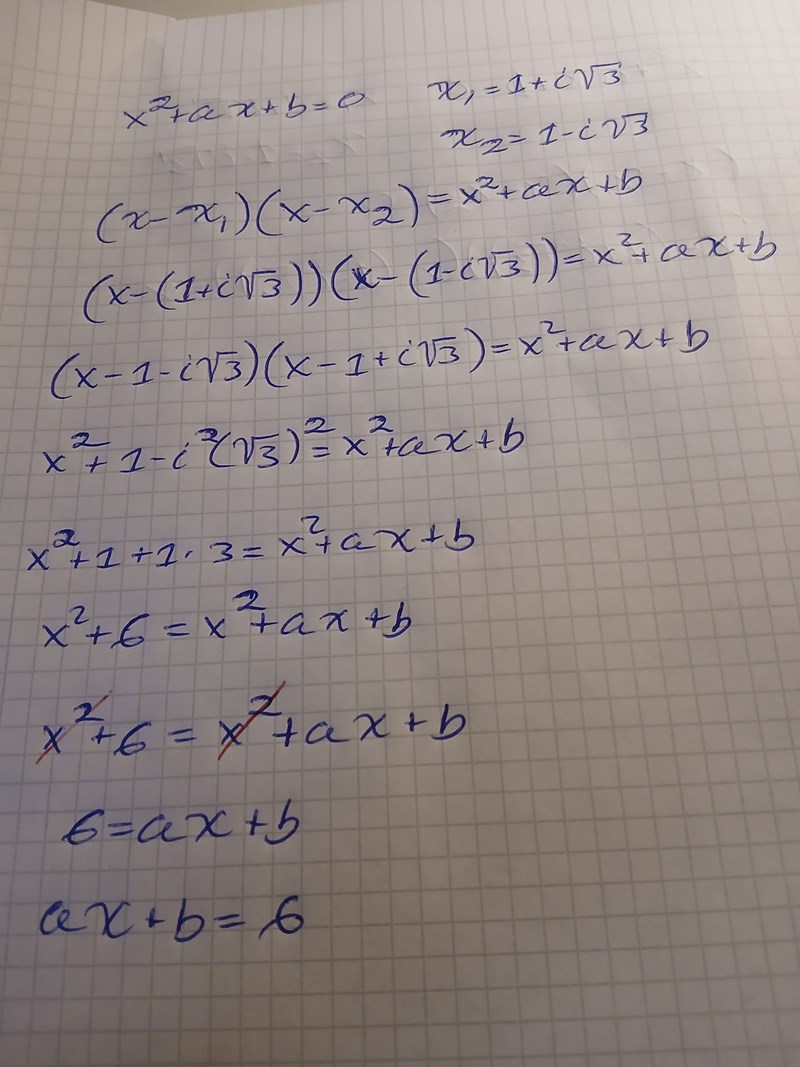 x²+ax+b=0 x₁=1+i√3
x₂=1-i√3
(x-x₁)(x-x₂)=x²+ax+b
(x-(1+i√3))(x-(1-i√3))=x²+ax+b
(x-1-i√3)(x-1+i√3)=x²+ax+b
x²+1-i²(√3)²=x²+ax+b
x²+1+1·3=x²+ax+b
x²+6=x²+ax+b
x²+6=x²+ax+b
6=ax+b
ax+b=6